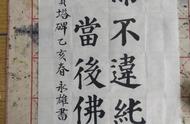 不違純
當後佛
塔碑乙亥春永雄書